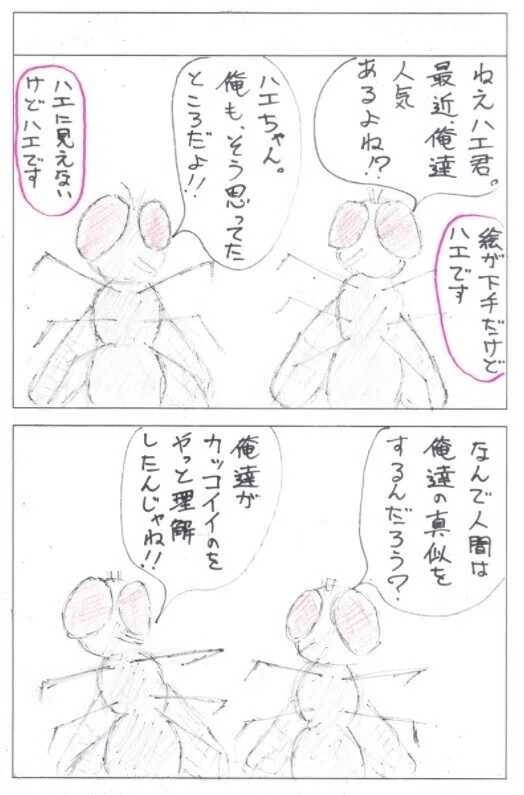 ねえハエ君。
最近、俺達
人気
あるよね!?
絵が下手だけど
ハエです
ハエちゃん。
俺も、そう思ってた
ところだよ!!
ハエに見えない
けどハエです
なんで人間は
俺達の真似を
するんだろう?
俺達が
カッコイイのを
やっと理解
したんじゃね!!